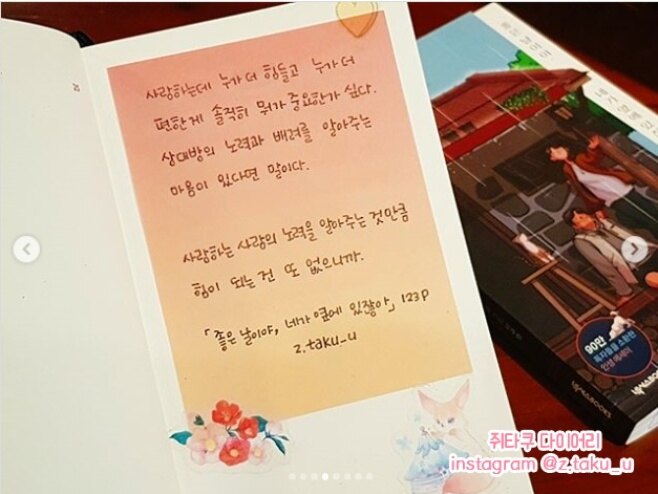 사랑하는데 누가 더 힘들고 누가 더
편한게 솔직히 뭐가 중요한가 싶다.
상대방의 노력과 배려를 알아주는
마음이 있다면 말이다.
사랑하는 사람의 노력을 알아주는 것만큼
힘이 되는 건 또 없으니까.
「좋은 날이야, 네가 옆에 있잖아」 123p
z.taku_u
90만
독자들을 소환한
인생 에세이
넥서스BOOKS
쥐타쿠 다이어리
instagram @z.taku_u